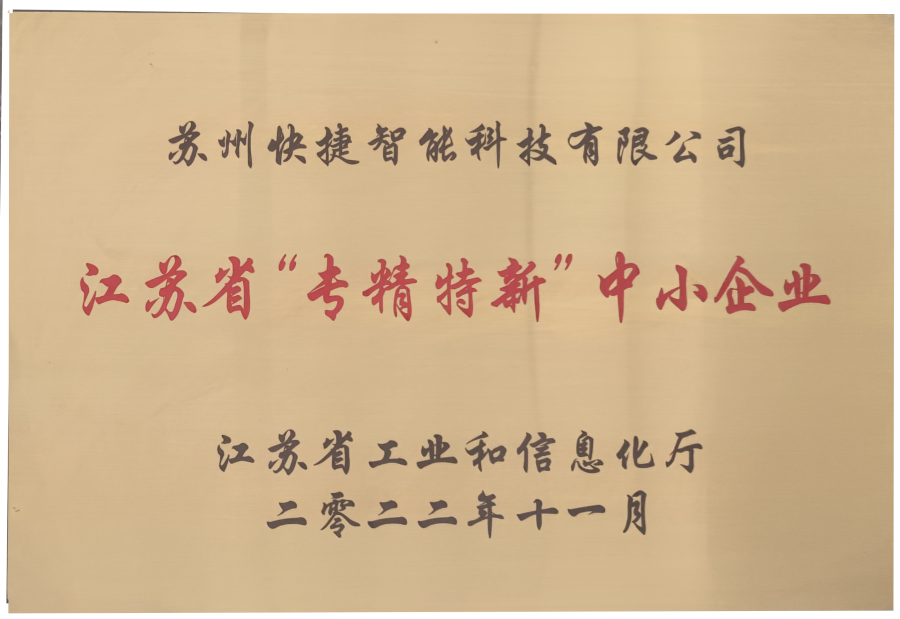 苏州快捷智能科技有限公司
江苏省“专精特新”中小企业
江苏省工业和信息化厅
二零二二年十一月